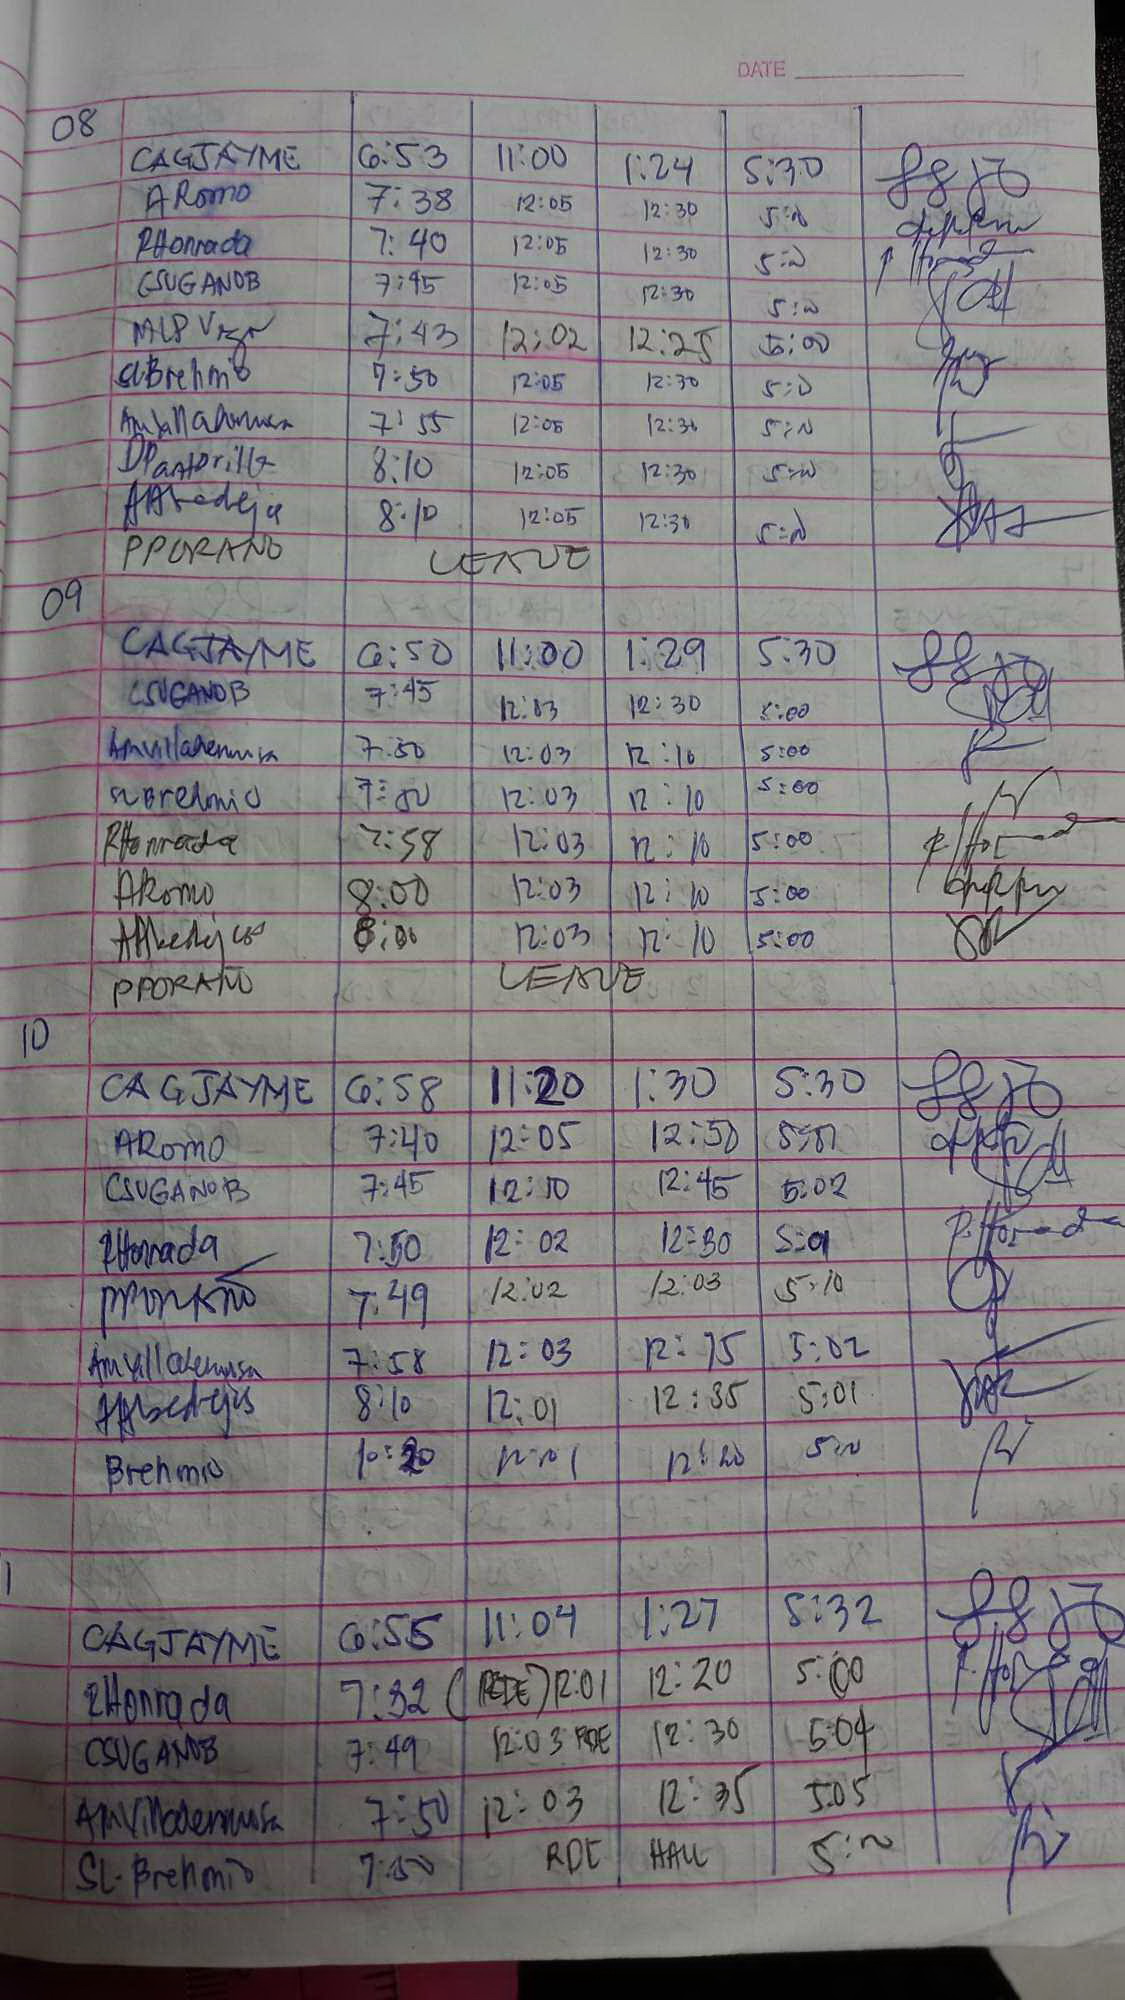 DATE
08
CAGJAYME 6:53 11:00 1:24 5:30
ARomo 7:38 12:05 12:30
RHonrada 7:40 12:05 12:30
CSUGANOB 7:45 12:05 12:30
7:43 12:02 12:25 5:00
SLBrehmio 7:50 12:05 12:30
AmVilladenusa 7:55 12:05 12:30
8:10 12:05 12:30
AAbedejos 8:10 12:05 12:30
PPORANO LEAVE
09
CAGJAYME 6:50 11:00 1:29 5:30
CSUGANOB 7:45 12:03 12:30 5:00
7:50 12:03 12:10 5:00
SLBrehmio 12:03 12:10 5:00
RHonrada 7:58 12:03 12:10 5:00
ARomo 8:00 12:03 12:10 5:00
8:00 12:03 12:10 5:00
PPORANO LEAVE
10
CAGJAYME 6:58 11:20 1:30 5:30
ARomo 7:40 12:05 12:50 5:01
CSUGANOB 7:45 12:10 12:45 5:02
RHonrada 7:50 12:02 12:30 5:01
PPORANO 7:49 12:02 12:03 5:10
7:58 12:03 12:15 5:02
8:10 12:01 12:35 5:01
Brehmio 10:20 12:01 12:20
CAGJAYME 6:55 11:04 1:27 5:32
RHonrada 7:32 (RDE) 12:01 12:20 5:00
CSUGANOB 7:49 12:03 RDE 12:30 5:04
7:50 12:03 12:35 5:05
SL. Brehmio 7:50 RDE HALL